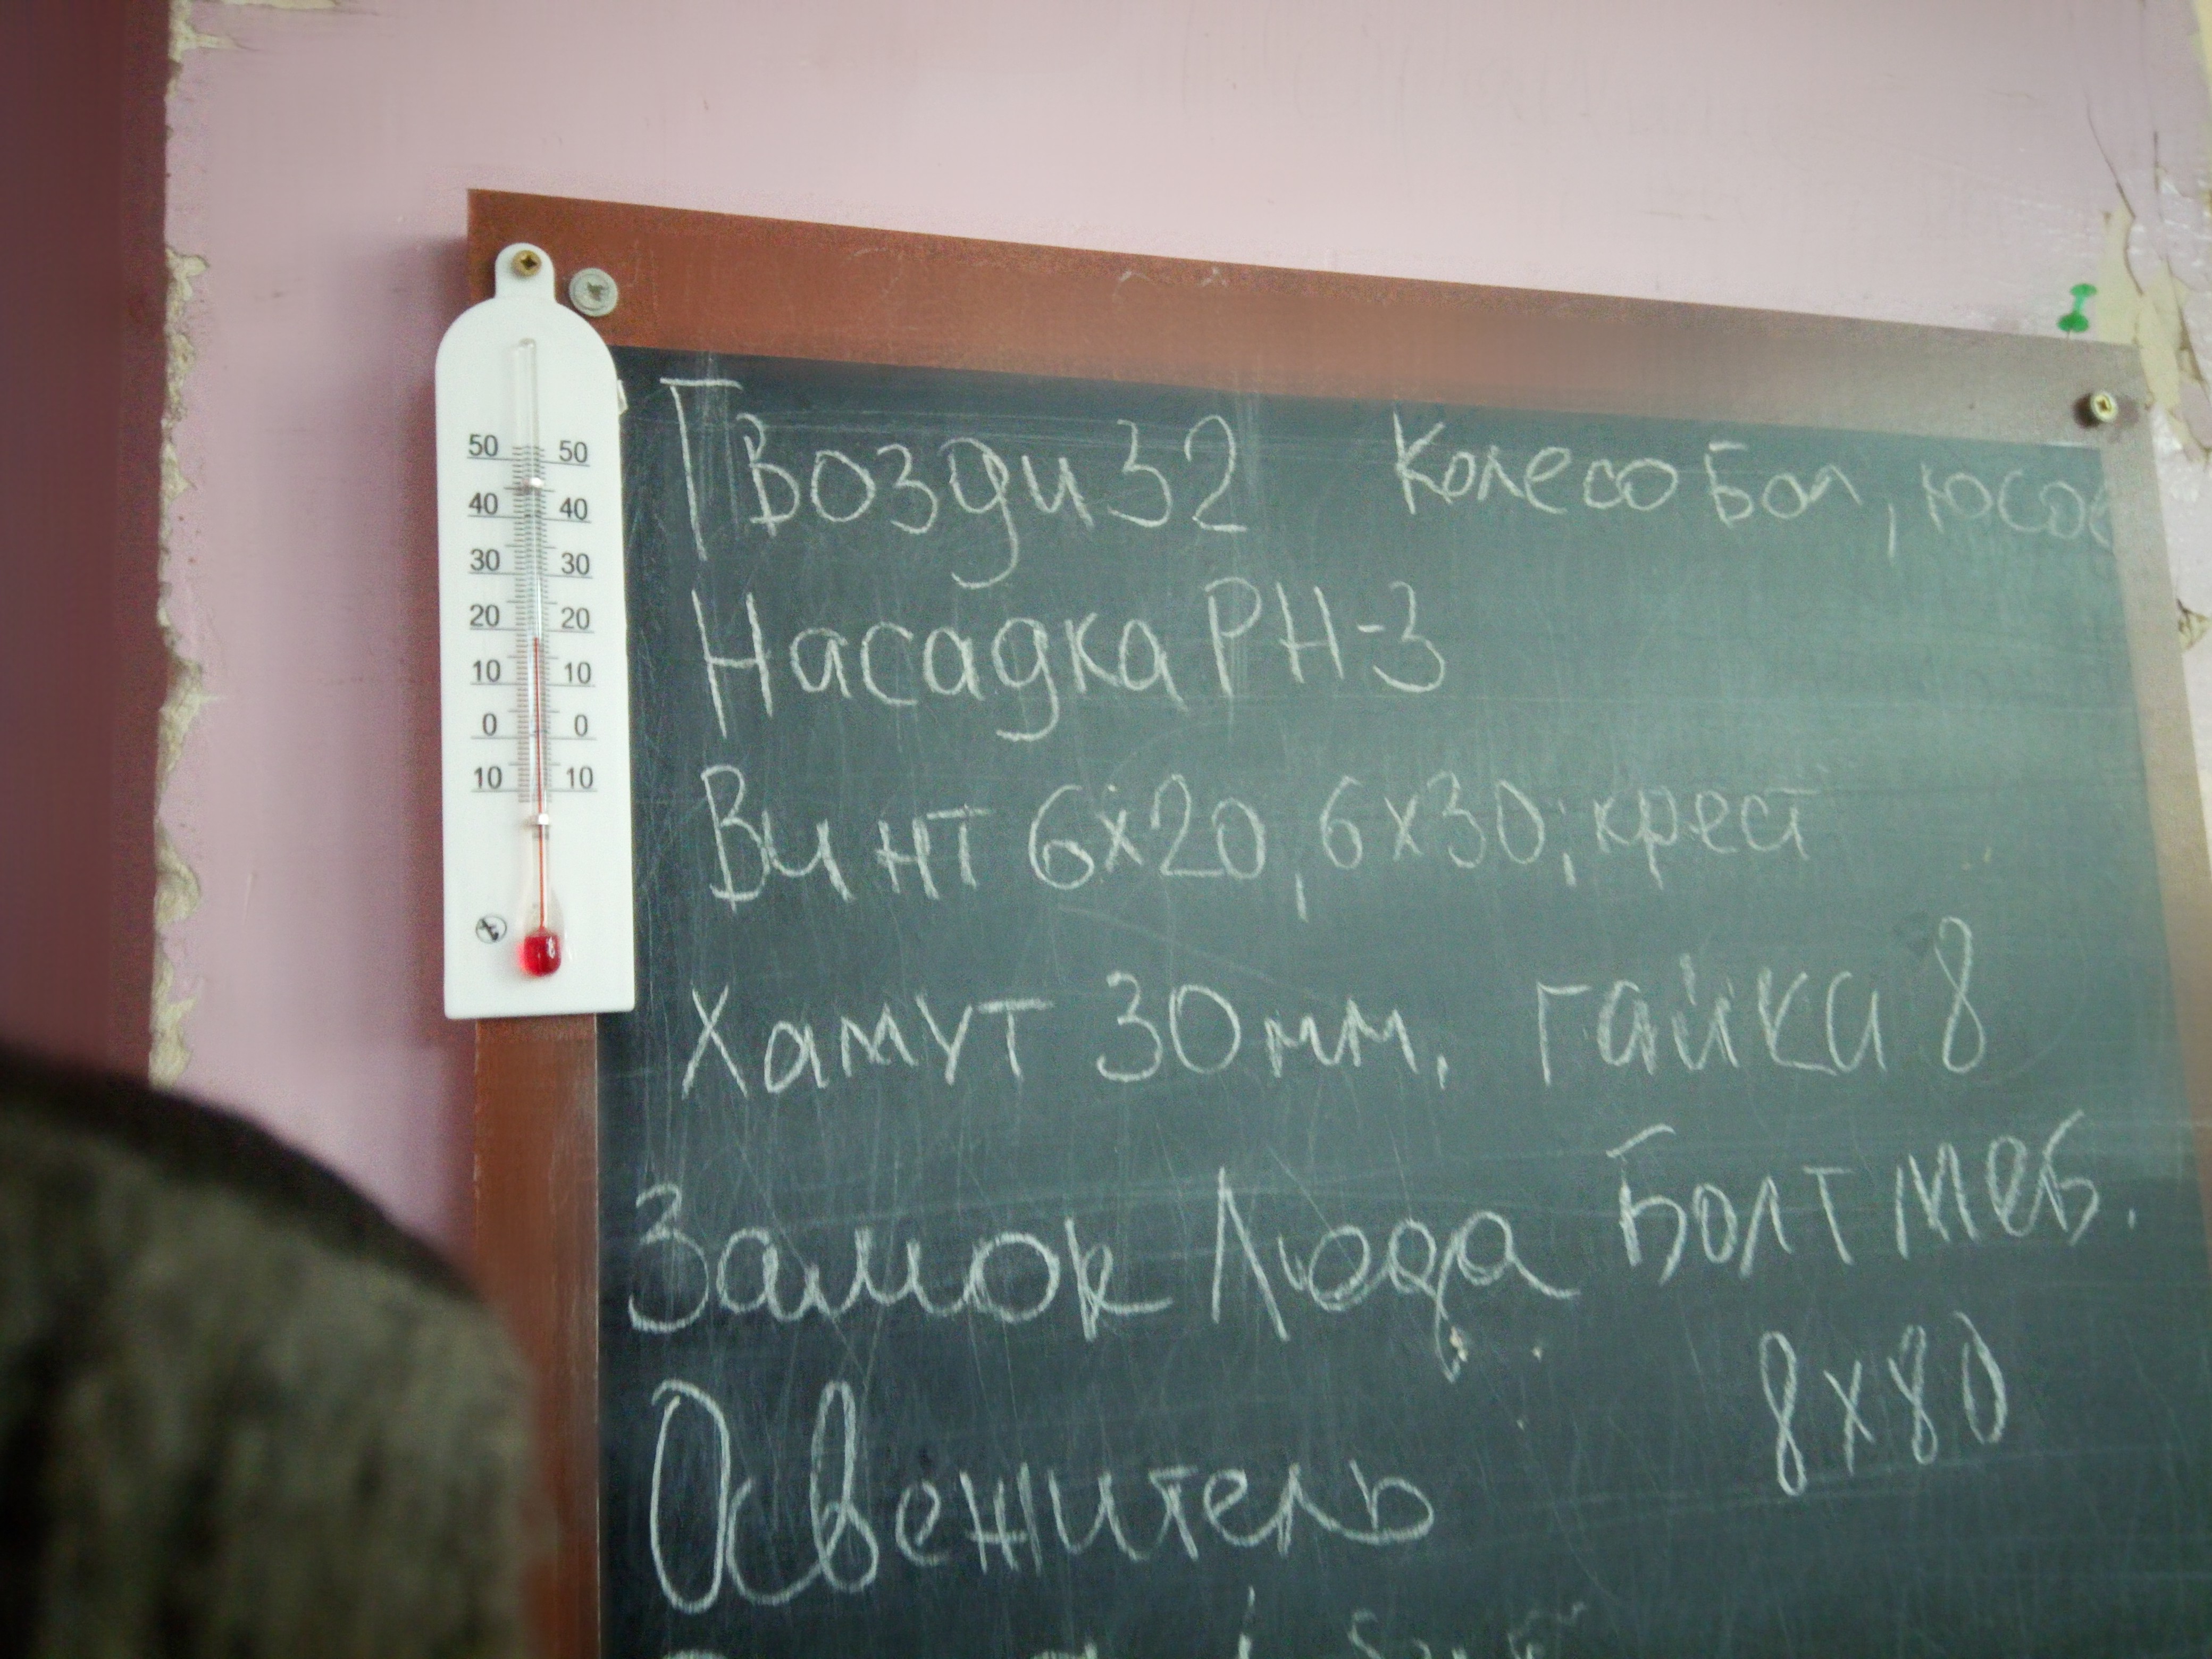 50 50
40 40
30 30
20 20
10 10
0 0
10 10
Гвозди 32 Колесо Бол,
Насадка PH-3
Винт 6х20, 6х30; крест
Хамут 30мм, гайка 8
Замок Люда Болт меб.
8х80
Освежитель